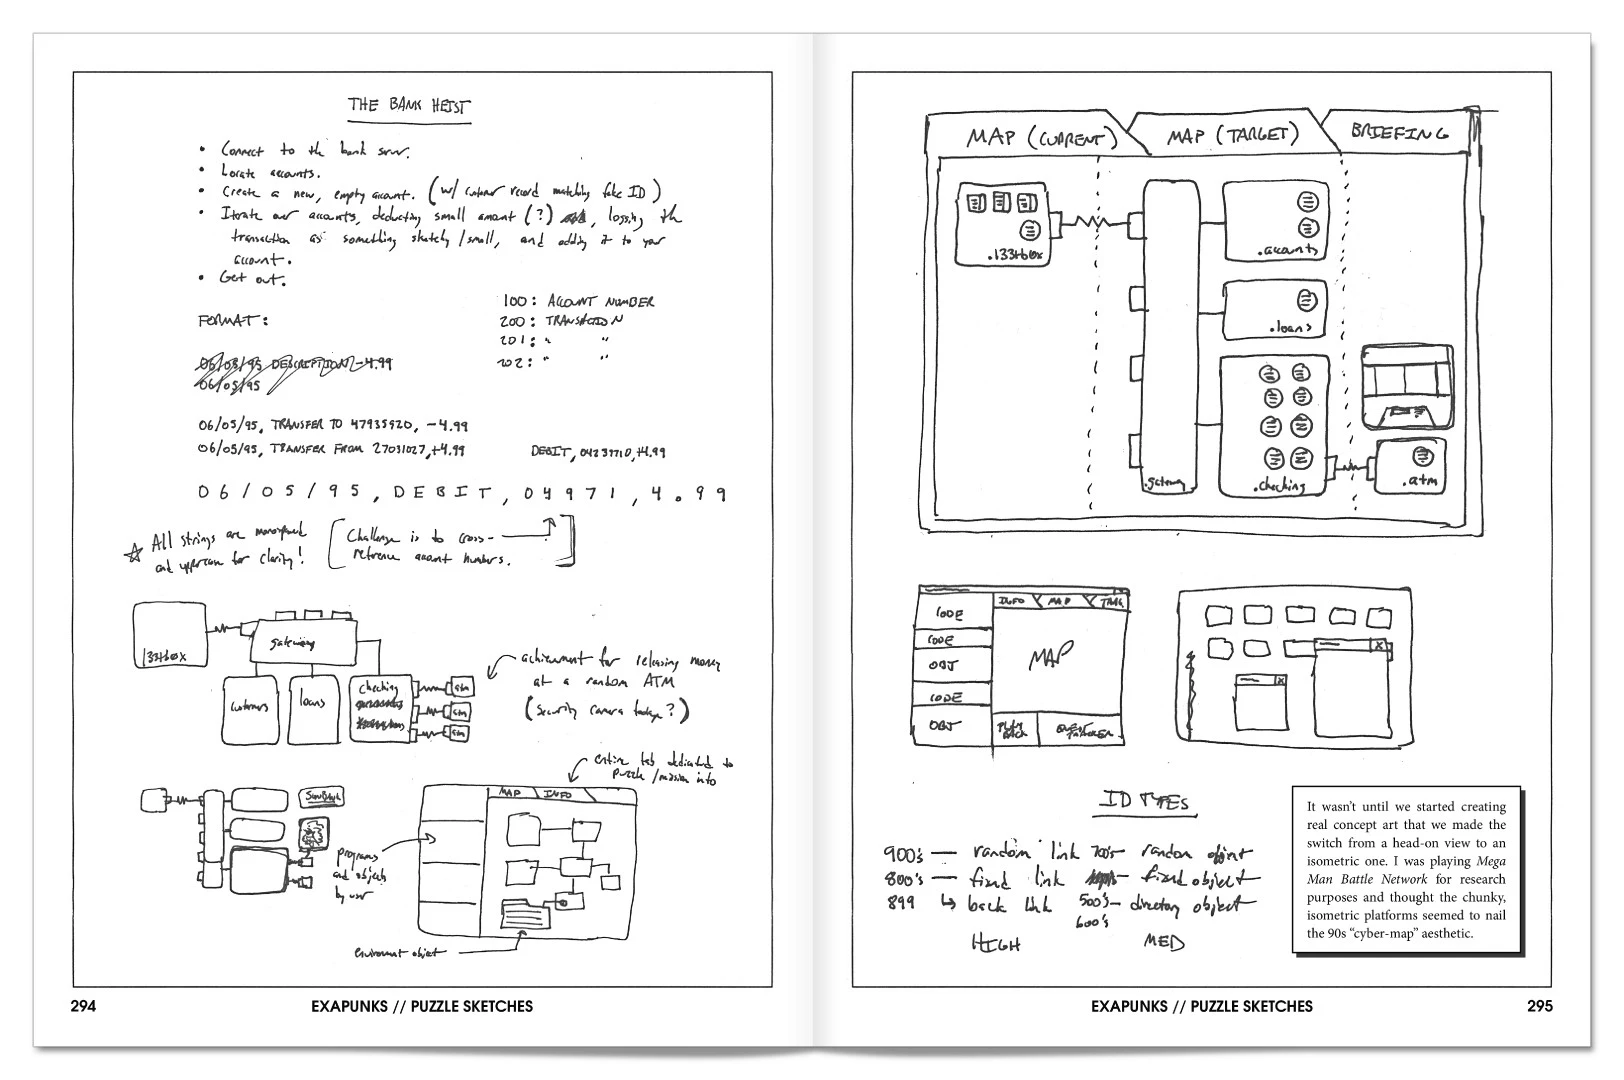 THE BANK HEIST
• Connect to the bank server.
• Locate accounts.
• Create a new, empty account. (w/ customer record matching fake ID)
• Iterate over accounts, deducting small amount (?) , logging the
transaction as something sketchy/small, and adding it to your
account.
• Get out.
100: ACCOUNT NUMBER
FORMAT:
200: TRANSACTION
201: " "
202: " "
06/03/95 DESCRIPTION -4.99
06/05/95
06/05/95, TRANSFER TO 47935920, -4.99
06/05/95, TRANSFER FROM 27031027, +4.99
DEBIT, 04237710, +4.99
06/05/95, DEBIT, 04971, 4.99
☆ All strings are monospaced
and uppercase for clarity!
[Challenge is to cross-
reference account numbers.]
133tbox
gateway
customers
loans
checking
atm
atm
atm
achievement for releasing money
at a random ATM
(security camera footage?)
entire tab dedicated to
puzzle/mission info
SunBank
MAP
INFO
programs
and objects
by user
environment object
294
EXAPUNKS // PUZZLE SKETCHES
MAP (CURRENT)
MAP (TARGET)
BRIEFING
.133tbox
.accounts
.loans
.gateway
.checking
.atm
CODE
CODE
OBJ
CODE
OBJ
INFO
MAP
MAP
PLAY
BACK
ID TYPES
900's — random link
700's random object
800's — fixed link
— fixed object
899 ↳ back link
500's — directory object
600's
HIGH
MED
It wasn't until we started creating
real concept art that we made the
switch from a head-on view to an
isometric one. I was playing Mega
Man Battle Network for research
purposes and thought the chunky,
isometric platforms seemed to nail
the 90s "cyber-map" aesthetic.
EXAPUNKS // PUZZLE SKETCHES
295